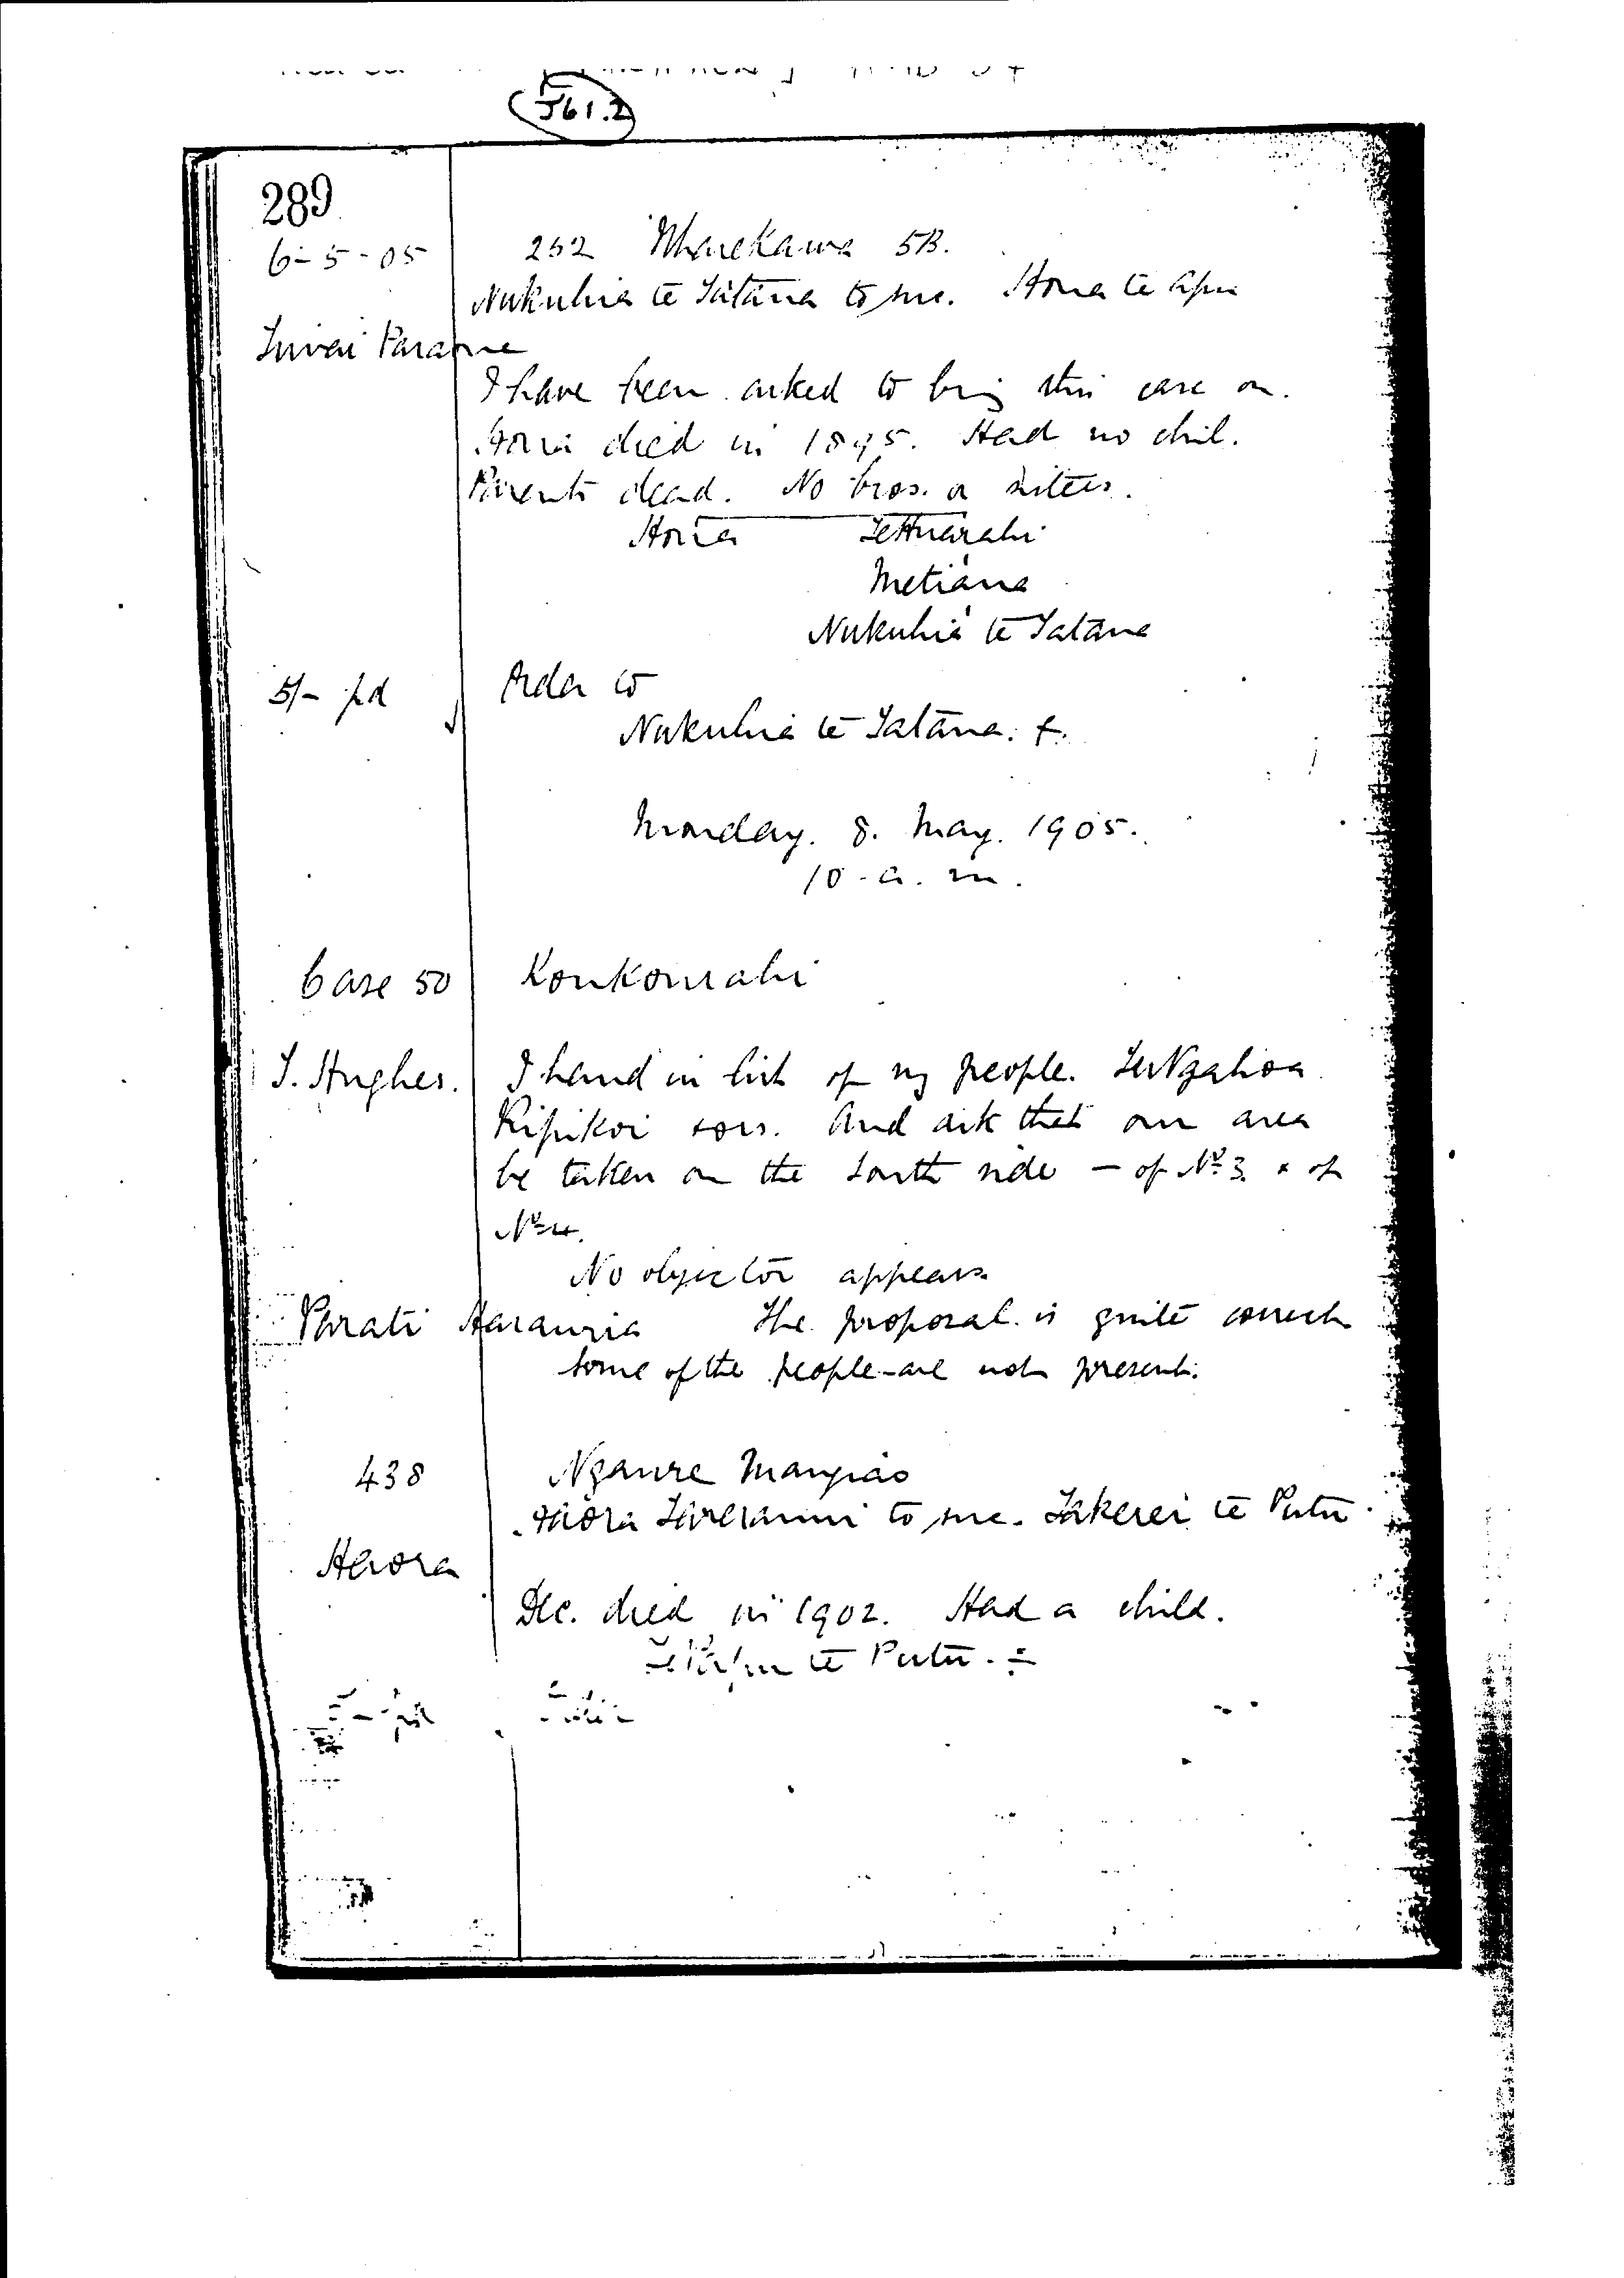 J61.2
289
6-5-05
252 Wharekawa 5B.
Nukuhia te Tatana to suc. Hona te Apu
Turai Paraone
I have been asked to bring this case on.
died in 1895. Had no chil.
Parents dead. No bros. or sisters.
Te Huarahi
Metiana
Nukuhia te Tatana
5/- pd Order to
Nukuhia te Tatana. f.
Monday. 8. May. 1905.
10 a.m.
Case 50 Koukourahi
T. Hughes. I hand in list of my people.
Ripikoi sors. And ask that our area
be taken on the South side — of No 3 & of
No 4.
No objector appears
Parati Haranria The proposal is quite correct
some of the people are not present.
438 Ngaure Mangiao
to suc. Takerei te Putu
Haora
Dec. died in 1902. Had a child.
te Putu.